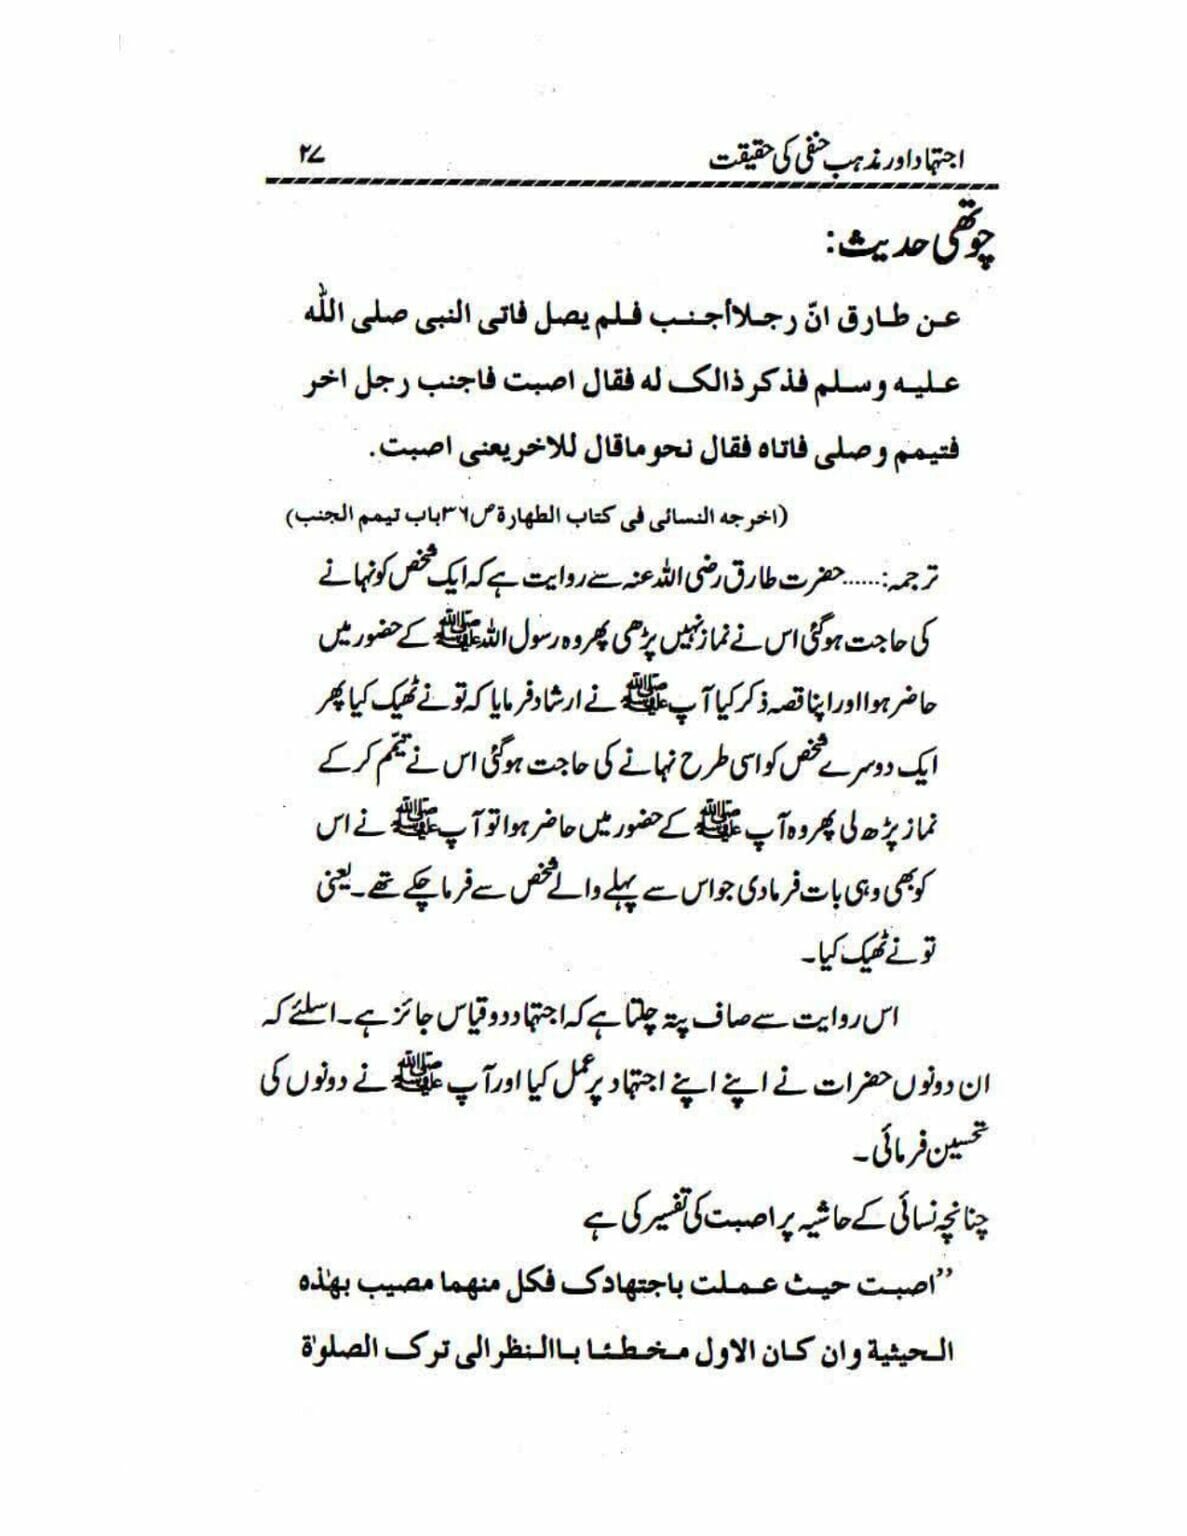 اجتہاد اور مذہب حنفی کی حقیقت ۲۷
چوتھی حدیث:
عن طارق انّ رجلا أجنب فلم یصل فاتی النبی صلی اللّٰہ
علیہ وسلم فذکر ذالک لہ فقال اصبت فاجنب رجل اخر
فتیمم وصلی فاتاہ فقال نحو ماقال للاخر یعنی اصبت.
(اخرجہ النسائی فی کتاب الطھارۃ ص۳۶ باب تیمم الجنب)
ترجمہ:......حضرت طارق رضی اللہ عنہ سے روایت ہے کہ ایک شخص کو نہانے
کی حاجت ہوگئی اس نے نماز نہیں پڑھی پھر وہ رسول اللہ ﷺ کے حضور میں
حاضر ہوا اور اپنا قصہ ذکر کیا آپ ﷺ نے ارشاد فرمایا کہ تو نے ٹھیک کیا پھر
ایک دوسرے شخص کو اسی طرح نہانے کی حاجت ہوگئی اس نے تیمّم کر کے
نماز پڑھ لی پھر وہ آپ ﷺ کے حضور میں حاضر ہوا تو آپ ﷺ نے اس
کو بھی وہی بات فرمادی جو اس سے پہلے والے شخص سے فرما چکے تھے۔ یعنی
تو نے ٹھیک کیا۔
اس روایت سے صاف پتہ چلتا ہے کہ اجتہاد دو قیاس جائز ہے۔ اسلئے کہ
ان دونوں حضرات نے اپنے اپنے اجتہاد پر عمل کیا اور آپ ﷺ نے دونوں کی
تحسین فرمائی۔
چنانچہ نسائی کے حاشیہ پر اصبت کی تفسیر کی ہے
”اصبت حیث عملت باجتھادک فکل منھما مصیب بھٰذہ
الحیثیۃ وان کان الاول مخطئا باالنظر الی ترک الصلوٰۃ